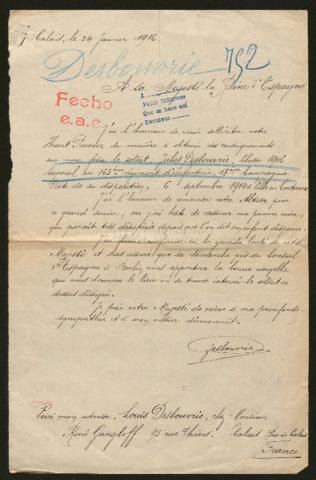 Calais, le 24 Janvier 1916.
Desbouvrie 752
A Sa Majesté la Reine d'Espagne
Fecho
e.a.e.
A
Pedir informes
Que se hace así
Devolver
J'ai l'honneur de venir solliciter votre
Haut Pouvoir de manière à obtenir des renseignements
sur mon frère le soldat Jules Desbouvrie, classe 1906
caporal au 165ème régiment d'infanterie, 18ème Compagnie
Date de sa disparition, 6 septembre 1914 à
J'ai l'honneur de remercier votre Altesse pour
ce grand service, car j'ai hâte de rassurer ma pauvre mère,
qui paraît très désespérée depuis que l'on dit son enfant disparu.
J'ai ferme confiance en la grande bonté de votre
Majesté et suis assuré que sa démarche près du Conseil
d'Espagne à Berlin nous apportera la bonne nouvelle
qui nous donnera le lieu où se trouve interné le soldat ci
dessus désigné.
Je prie votre Majesté de croire à ma profonde
sympathie et à mon entier dévouement.
Desbouvrie
Voici mon adresse: Louis Desbouvrie, chez Monsieur
René Gangloff 93 rue Thiers. Calais Pas de Calais
France